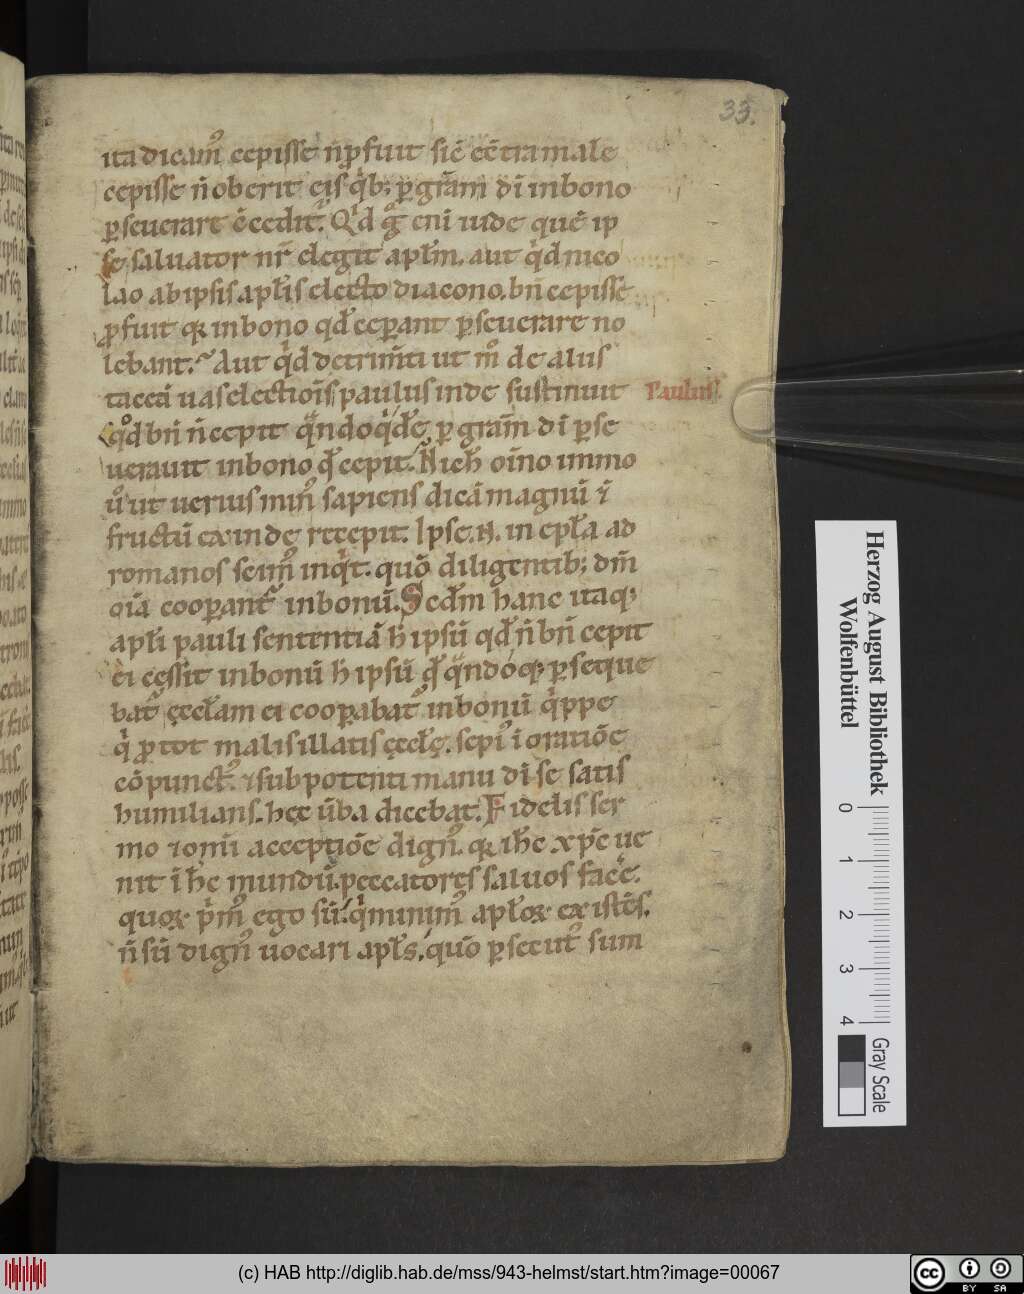 33.
ita dicam᷒ cepisse n̄ p̱fuit sic̄ ec̄tra male
cepisse n̄ oberit eis q̇b; p̱ gr̄am dī in bono
p̱seuerare c̄cedit᷒. Qͥd gͦ eni iude quē ip
se saluator nr̄ elegit apłm. aut qͥd nico
lao ab ipsis apłis electo diacono. bn̄ cepisse
p̱fuit qꝛ in bono qd̄ cep̱ant p̱seuerare no
lebant. Aut qͥd detrim̄ti ut mͦ de aliis
tacea uas electiōis paulus inde sustinuit
Paulus
qͦd bn̄ n̄ cepit qͣndoqͥdē p̱ gram̄ dī p̱se
uerauit in bono qd̄ cepit. N̄ ich̄ oīno immo
uͦ ut uerius min᷒ sapiens dicā magnū ī
fructū exinde recepit. Ipse .N. in epła ad
romanos scim᷒ inqͥt. quō diligentib; dm̄
oīa coop̱ant᷒ in bonū. Sed̄m hanc itaq;
apłi pauli sententiā h̄ ipsū qd̄ n̄ bn̄ cepit
ei cessit in bonū h̄ ipsū qd̄ qͣndoq; p̱seque
bat᷒ ęccłam ei coop̱abat᷒ in bonū qͥppe
qͥ p̱ tot malis illatis ęccłę. sepi᷒ ī oratiōe
cōpunct᷒. ⁊ sub potenti manu dī se satis
humilians. hęc ūba dicebat. Fidelis ser
mo ⁊ omī acceptiōe dign᷒. qꝛ ih̄c xp̄c ue
nit ī hc̄ mundū. peccatores saluos facē.
quoꝝ pͥm᷒ ego sū. qͥ minim᷒ apłoꝝ existēs.
n̄ sū dign᷒ uocari apłs, quō p̱secut᷒ sum
Herzog August Bibliothek
Wolfenbüttel
0 1 2 3 4
Gray Scale
(c) HAB http://diglib.hab.de/mss/943-helmst/start.htm?image=00067
cc BY SA